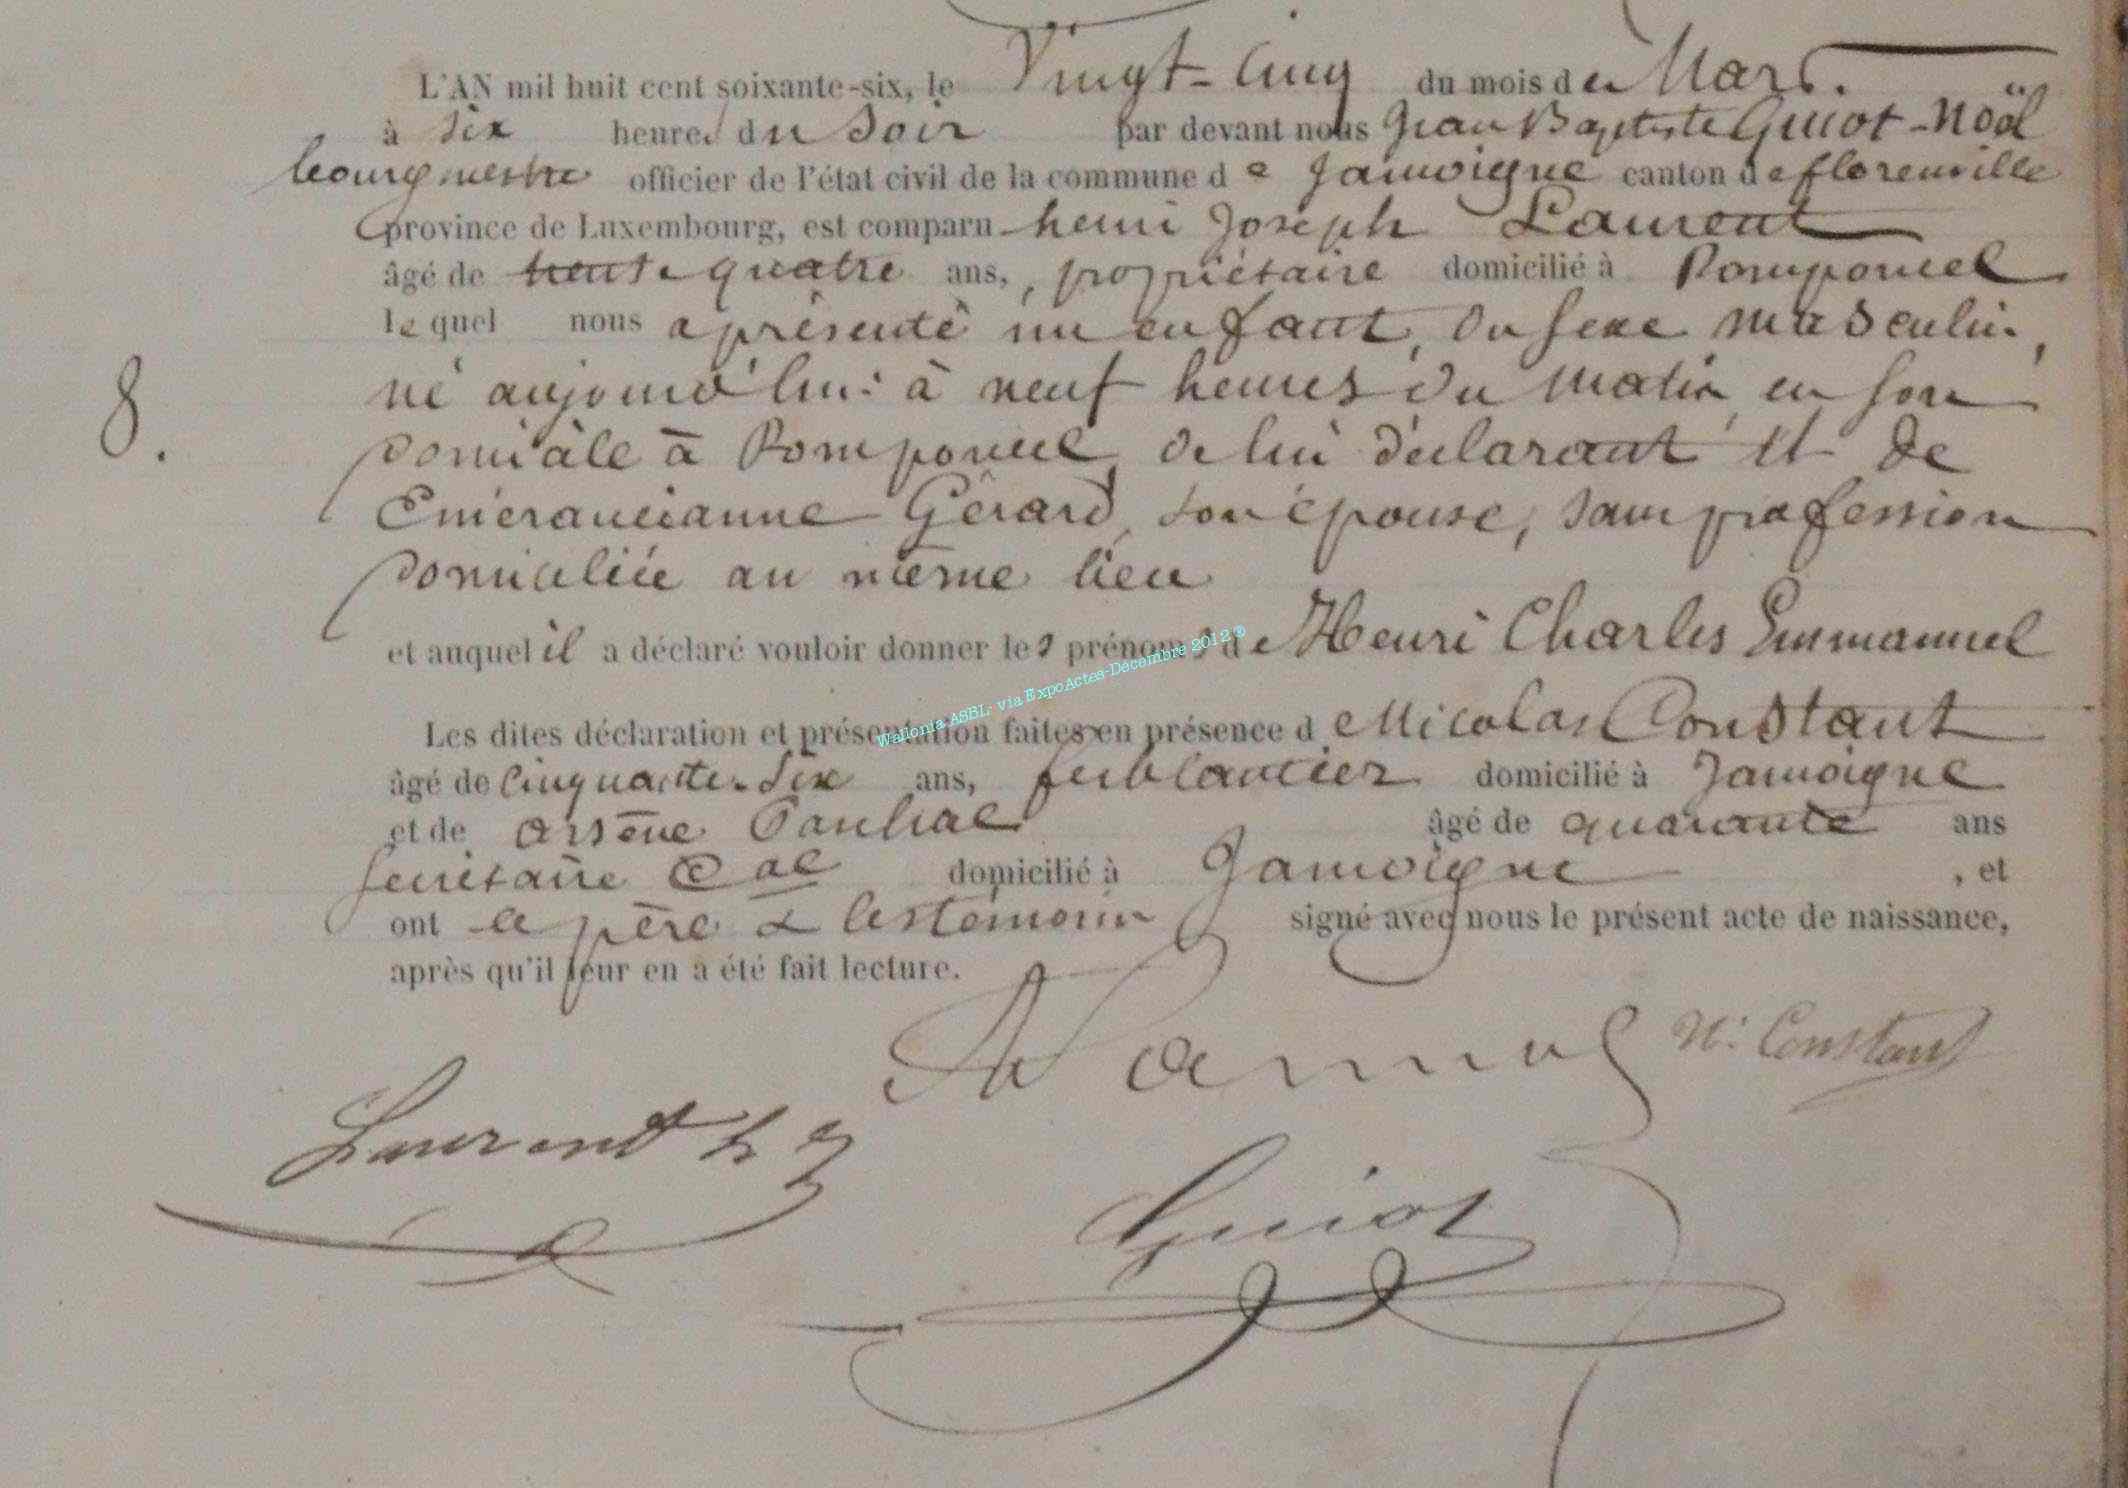 L'AN mil huit cent soixante-six, le Vingt-Cinq du mois de Mars.
à Six heures du Soir par devant nous Jean Baptiste Guiot-Noöl
bourgmestre officier de l'état civil de la commune de Jamoigne canton de florenville
province de Luxembourg, est comparu henri Joseph Laurent
âgé de trente quatre ans, propriétaire domicilié à Romponcel
lequel nous a présenté un enfant, du sexe masculin,
8. né aujourd'hui à neuf heures du matin, en son
domicile à Romponcel, de lui déclarant et de
Emérancianne Gérard, son épouse, sans profession
domiciliée au même lieu
et auquel il a déclaré vouloir donner les prénoms de Henri Charles Emmanuel
Wallonia ASBL- via ExpoActes-Décembre 2012 ®
Les dites déclaration et présentation faites en présence de Nicolas Constant
âgé de Cinquante-Six ans, ferblantier domicilié à Jamoigne
et de Arsène âgé de quarante ans
secrétaire Cal domicilié à Jamoigne , et
ont le père & les témoins signé avec nous le présent acte de naissance,
après qu'il leur en a été fait lecture.
N. Constant
Laurent h j
Guiot